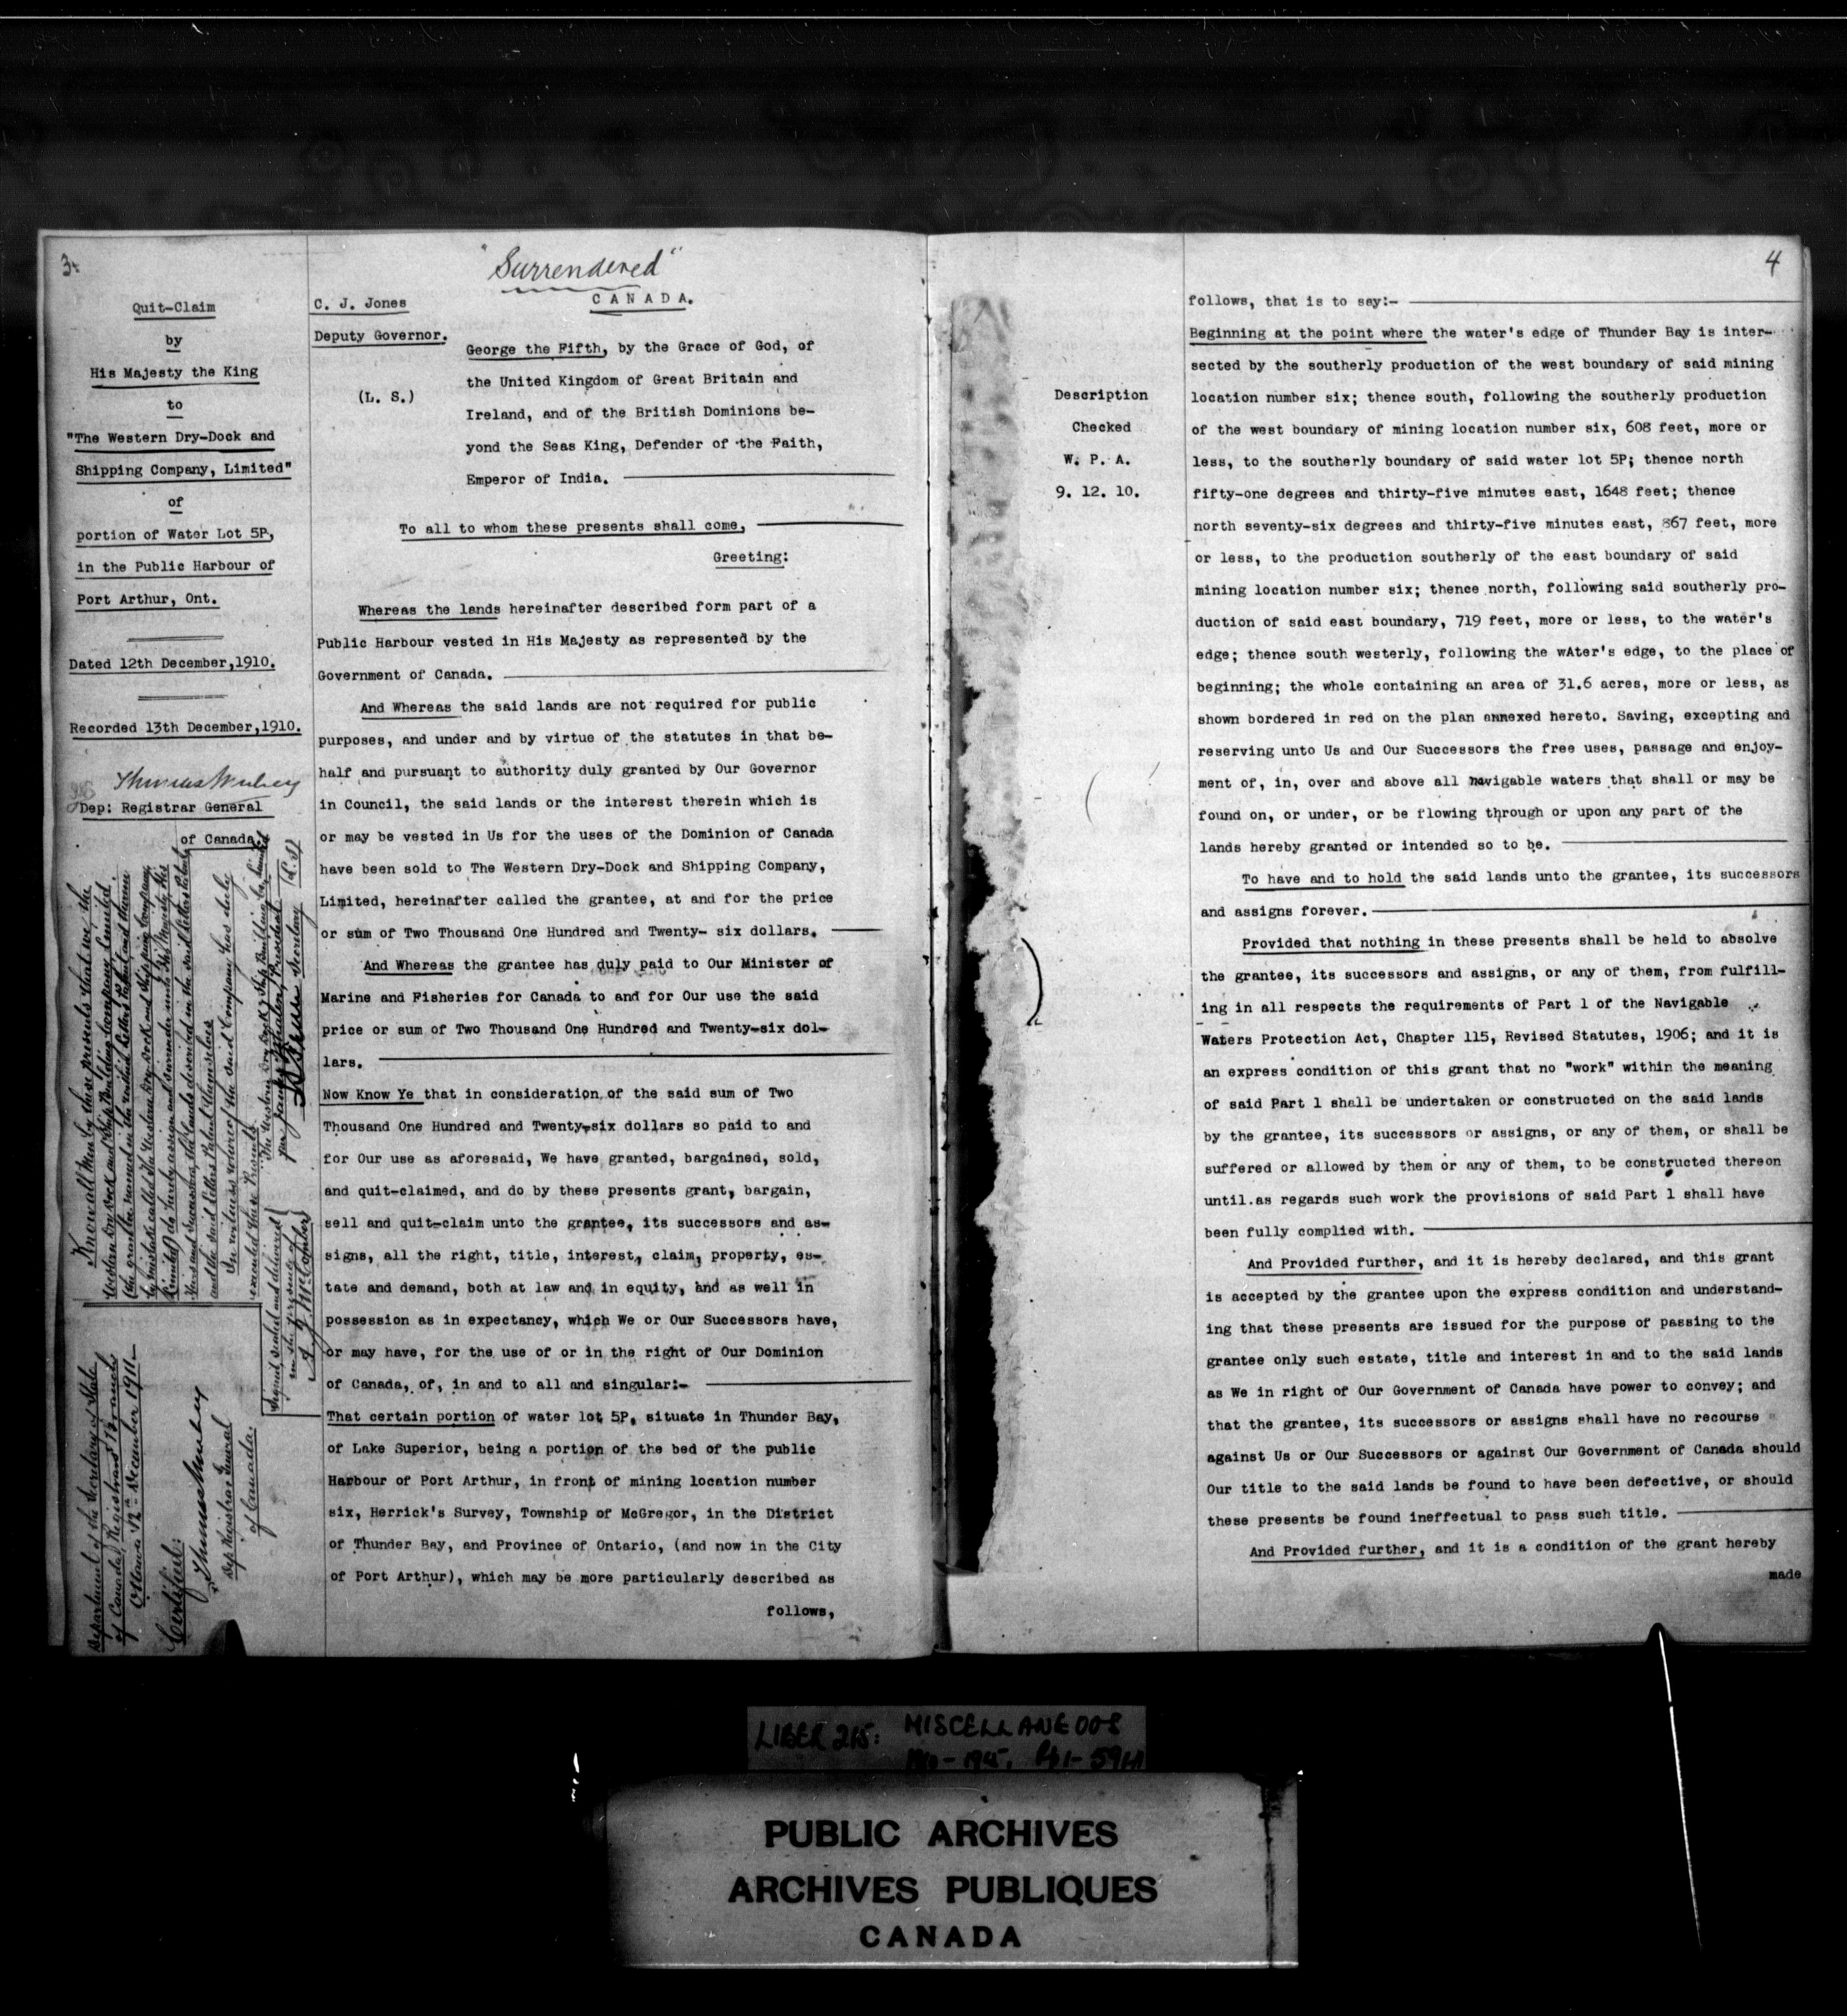 3.
Quit-Claim
by
His Majesty the King
to
"The Western Dry-Dock and
Shipping Company, Limited"
of
portion of Water Lot 5P,
in the Public Harbour of
Port Arthur, Ont.
Dated 12th December,1910.
Recorded 13th December,1910.
Thomas Mulvey
Dep: Registrar General
of Canada
Know all Men by these presents that we the
Western Dry Dock and Ship Building Company Limited
(the grantee named in the within Letters Patent and therein
by mistake called The Western Dry-Dock and Shipping Company,
Limited) do hereby assign and surrender unto His Majesty, His
Heirs and Successors, the lands described in the said Letters Patent
and the said Letters Patent themselves
In witness whereof the said Company has duly
executed these Presents.
"The Western Dry Dock & Ship Building Co, Limited
per James Whalen, President (L.S.)
Secretary
Signed, sealed and delivered
in the presence of
Department of the Secretary of State
of Canada, Registrar's Branch
Ottawa 12th December 1911
Certified:
Thomas Mulvey
Dep. Registrar General
of Canada.
"Surrendered"
C. J. Jones
CANADA.
Deputy Governor.
(L. S.)
George the Fifth, by the Grace of God, of
the United Kingdom of Great Britain and
Ireland, and of the British Dominions be-
yond the Seas King, Defender of the Faith,
Emperor of India.
To all to whom these presents shall come,
Greeting:
Whereas the lands hereinafter described form part of a
Public Harbour vested in His Majesty as represented by the
Government of Canada.
And Whereas the said lands are not required for public
purposes, and under and by virtue of the statutes in that be-
half and pursuant to authority duly granted by Our Governor
in Council, the said lands or the interest therein which is
or may be vested in Us for the uses of the Dominion of Canada
have been sold to The Western Dry-Dock and Shipping Company,
Limited, hereinafter called the grantee, at and for the price
or sum of Two Thousand One Hundred and Twenty- six dollars.
And Whereas the grantee has duly paid to Our Minister of
Marine and Fisheries for Canada to and for Our use the said
price or sum of Two Thousand One Hundred and Twenty-six dol-
lars.
Now Know Ye that in consideration of the said sum of Two
Thousand One Hundred and Twenty-six dollars so paid to and
for Our use as aforesaid, We have granted, bargained, sold,
and quit-claimed, and do by these presents grant, bargain,
sell and quit-claim unto the grantee, its successors and as-
signs, all the right, title, interest, claim, property, es-
tate and demand, both at law and in equity, and as well in
possession as in expectancy, which We or Our Successors have,
or may have, for the use of or in the right of Our Dominion
of Canada, of, in and to all and singular:-
That certain portion of water lot 5P, situate in Thunder Bay,
of Lake Superior, being a portion of the bed of the public
Harbour of Port Arthur, in front of mining location number
six, Herrick's Survey, Township of McGregor, in the District
of Thunder Bay, and Province of Ontario, (and now in the City
of Port Arthur), which may be more particularly described as
follows,
4
Description
Checked
W. P. A.
9. 12. 10.
follows, that is to say:-
Beginning at the point where the water's edge of Thunder Bay is inter-
sected by the southerly production of the west boundary of said mining
location number six; thence south, following the southerly production
of the west boundary of mining location number six, 608 feet, more or
less, to the southerly boundary of said water lot 5P; thence north
fifty-one degrees and thirty-five minutes east, 1648 feet; thence
north seventy-six degrees and thirty-five minutes east, 867 feet, more
or less, to the production southerly of the east boundary of said
mining location number six; thence north, following said southerly pro-
duction of said east boundary, 719 feet, more or less, to the water's
edge; thence south westerly, following the wAter's edge, to the place of
beginning; the whole containing an area of 31.6 acres, more or less, as
shown bordered in red on the plan annexed hereto. Saving, excepting and
reserving unto Us and Our Successors the free uses, passage and enjoy-
ment of, in, over and above all navigable waters that shall or may be
found on, or under, or be flowing through or upon any part of the
lands hereby granted or intended so to be.
To have and to hold the said lands unto the grantee, its successors
and assigns forever.
Provided that nothing in these presents shall be held to absolve
the grantee, its successors and assigns, or any of them, from fulfill-
ing in all respects the requirements of Part 1 of the Navigable
Waters Protection Act, Chapter 115, Revised Statutes, 1906; and it is
an express condition of this grant that no "work" within the meaning
of said Part 1 shall be undertaken or constructed on the said lands
by the grantee, its successors or assigns, or any of them, or shall be
suffered or allowed by them or any of them, to be constructed thereon
until.as regards such work the provisions of said Part 1 shall have
been fully complied with.
And Provided further, and it is hereby declared, and this grant
is accepted by the grantee upon the express condition and understand-
ing that these presents are issued for the purpose of passing to the
grantee only such estate, title and interest in and to the said lands
as We in right of Our Government of Canada have power to convey; and
that the grantee, its successors or assigns shall have no recourse
against Us or Our Successors or against Our Government of Canada should
Our title to the said lands be found to have been defective, or should
these presents be found ineffectual to pass such title.
And Provided further, and it is a condition of the grant hereby
made
LIBER 215: MISCELLANEOUS
1910-1915, Pp 1-594
PUBLIC ARCHIVES
ARCHIVES PUBLIQUES
CANADA